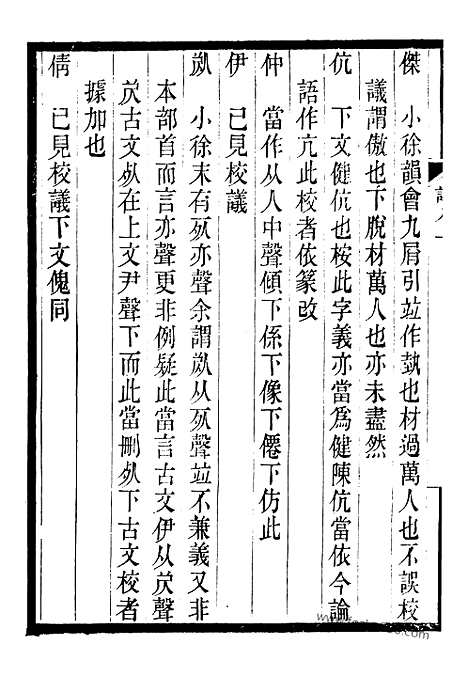 傑　小徐韻會九屑引竝作埶也材過萬人也不誤校
議謂傲也下脫材萬人也亦未盡然
伉　下文健伉也桉此字義亦當爲健陳伉當依今論
語作亢此校者依篆改
仲　當作从人中聲傾下係下像下僊下仿此
伊　已見校議
小徐末有亦聲余謂从聲竝不兼義又非
本部首而言亦聲更非例疑此當言古文伊从聲
古文在上文尹聲下而此當刪下古文校者
據加也
倩　已見校議下文傀同